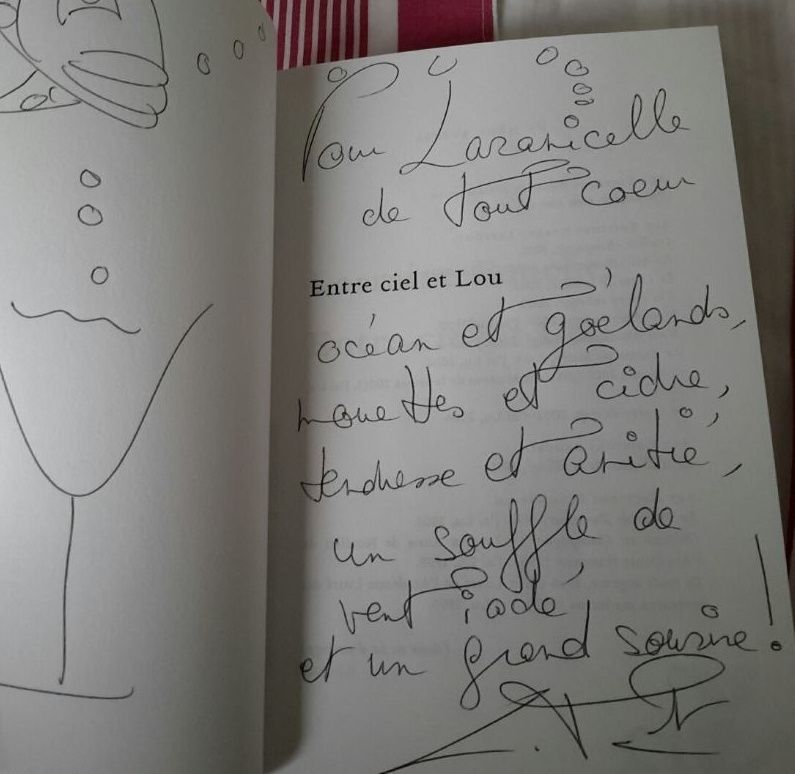 Pour Lazanicelle
de tout coeur
Entre ciel et Lou
océan et goëlands,
mouettes et cidre,
tendresse et amitié,
un souffle de
vent iodé,
et un grand sourire!